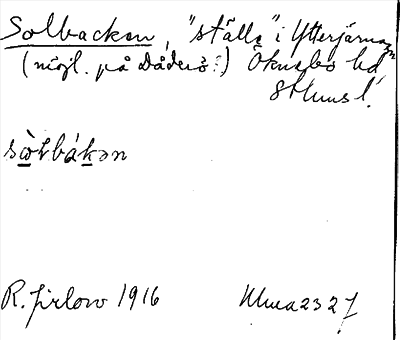 Solbacken, "ställe" i Ytterjärna sn
(möjl. på Dåderö?) Öknebo hd,
Sthms l.
sòlbákən
R. Jirlow 1916 Ulma 2327